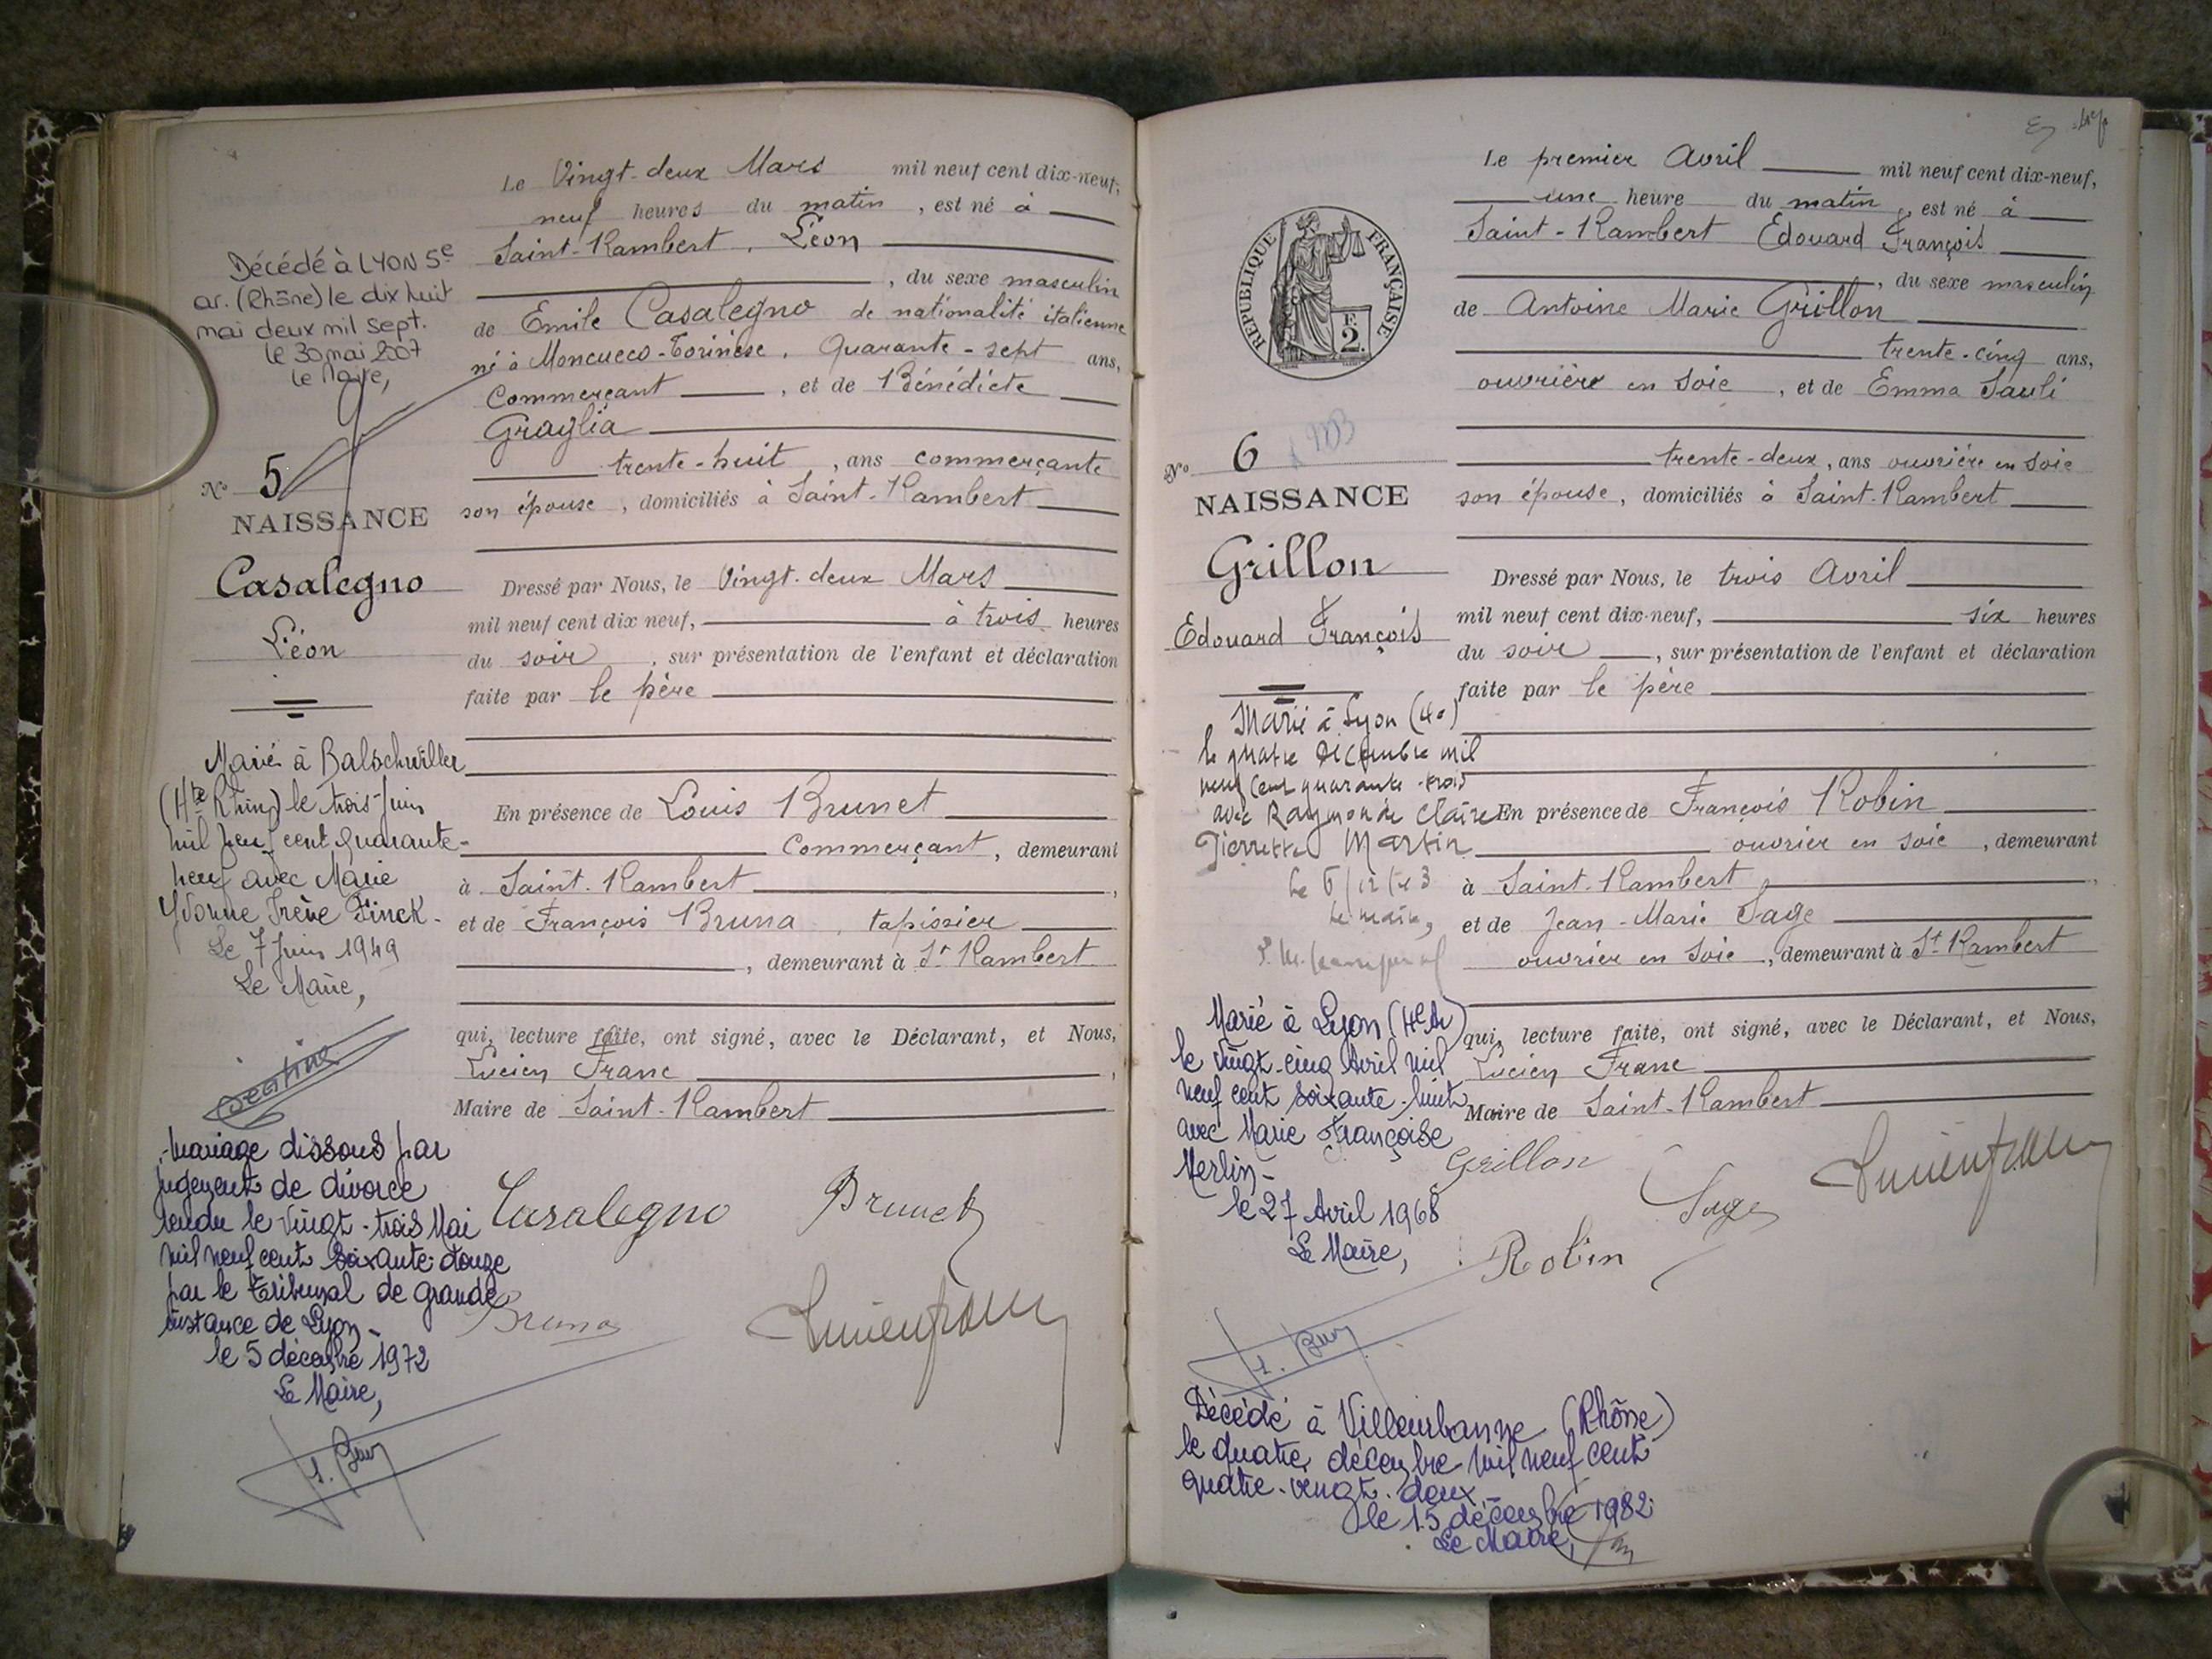 Le Vingt-deux Mars mil neuf cent dix-neuf,
neuf heures du matin, est né à
Saint-Rambert, Léon
, du sexe masculin
de Emile Casalegno de nationalité italienne
né à Moncucco-Torinese, Quarante-sept ans,
Commerçant, et de Bénédicte
Graglia
trente-huit, ans commerçante
son épouse, domiciliés à Saint-Rambert
Dressé par Nous, le Vingt-deux Mars
mil neuf cent dix neuf, à trois heures
du soir, sur présentation de l'enfant et déclaration
faite par le père
En présence de Louis Brunet
Commerçant, demeurant
à Saint-Rambert,
et de François Bruna, tapissier
, demeurant à St Rambert
qui, lecture faite, ont signé, avec le Déclarant, et Nous,
Lucien Franc,
Maire de Saint-Rambert
Casalegno Brunet
Bruna Lucien Franc
Décédé à LYON 5e
ar. (Rhône) le dix huit
mai deux mil sept.
le 30 mai 2007
le Maire,
No 5
NAISSANCE
Casalegno
Léon
Marié à Balschwiller
(Hte Rhin) le trois Juin
mil neuf cent quarante-
neuf avec Marie
Yvonne Irène Finck-
Le 7 Juin 1949
Le Maire,
Mariage dissous par
jugement de divorce
rendu le Vingt-trois Mai
mil neuf cent soixante-douze
par le Tribunal de grande
instance de Lyon-
le 5 décembre 1972
Le Maire,
Le premier Avril mil neuf cent dix-neuf,
une heure du matin, est né à
Saint-Rambert Edouard François
, du sexe masculin
de Antoine Marie Grillon
trente-cinq ans,
ouvrière en soie, et de Emma Sauli
trente-deux, ans ouvrière en soie
son épouse, domiciliés à Saint-Rambert
Dressé par Nous, le trois Avril
mil neuf cent dix-neuf, six heures
du soir, sur présentation de l'enfant et déclaration
faite par le père
En présence de François Robin
ouvrier en soie, demeurant
à Saint-Rambert,
et de Jean-Marie Sage
ouvrier en soie, demeurant à St Rambert
qui, lecture faite, ont signé, avec le Déclarant, et Nous,
Lucien Franc
Maire de Saint-Rambert
Grillon Sage Lucien Franc
Robin
REPUBLIQUE FRANÇAISE
F.
2.
No 6
NAISSANCE
Grillon
Edouard François
Marié à Lyon (4e)
le quatre décembre mil
neuf cent quarante-trois
avec Raymonde Claire
Pierrette Martin
Le 6/12/43
Le maire,
Marié à Lyon (4e Ar)
le Vingt-cinq Avril mil
neuf cent soixante-huit
avec Marie Françoise
Merlin-
le 27 Avril 1968
Le Maire,
Décédé à Villeurbanne (Rhône)
le quatre décembre mil neuf cent
quatre-vingt-deux-
le 15 décembre 1982
Le Maire,